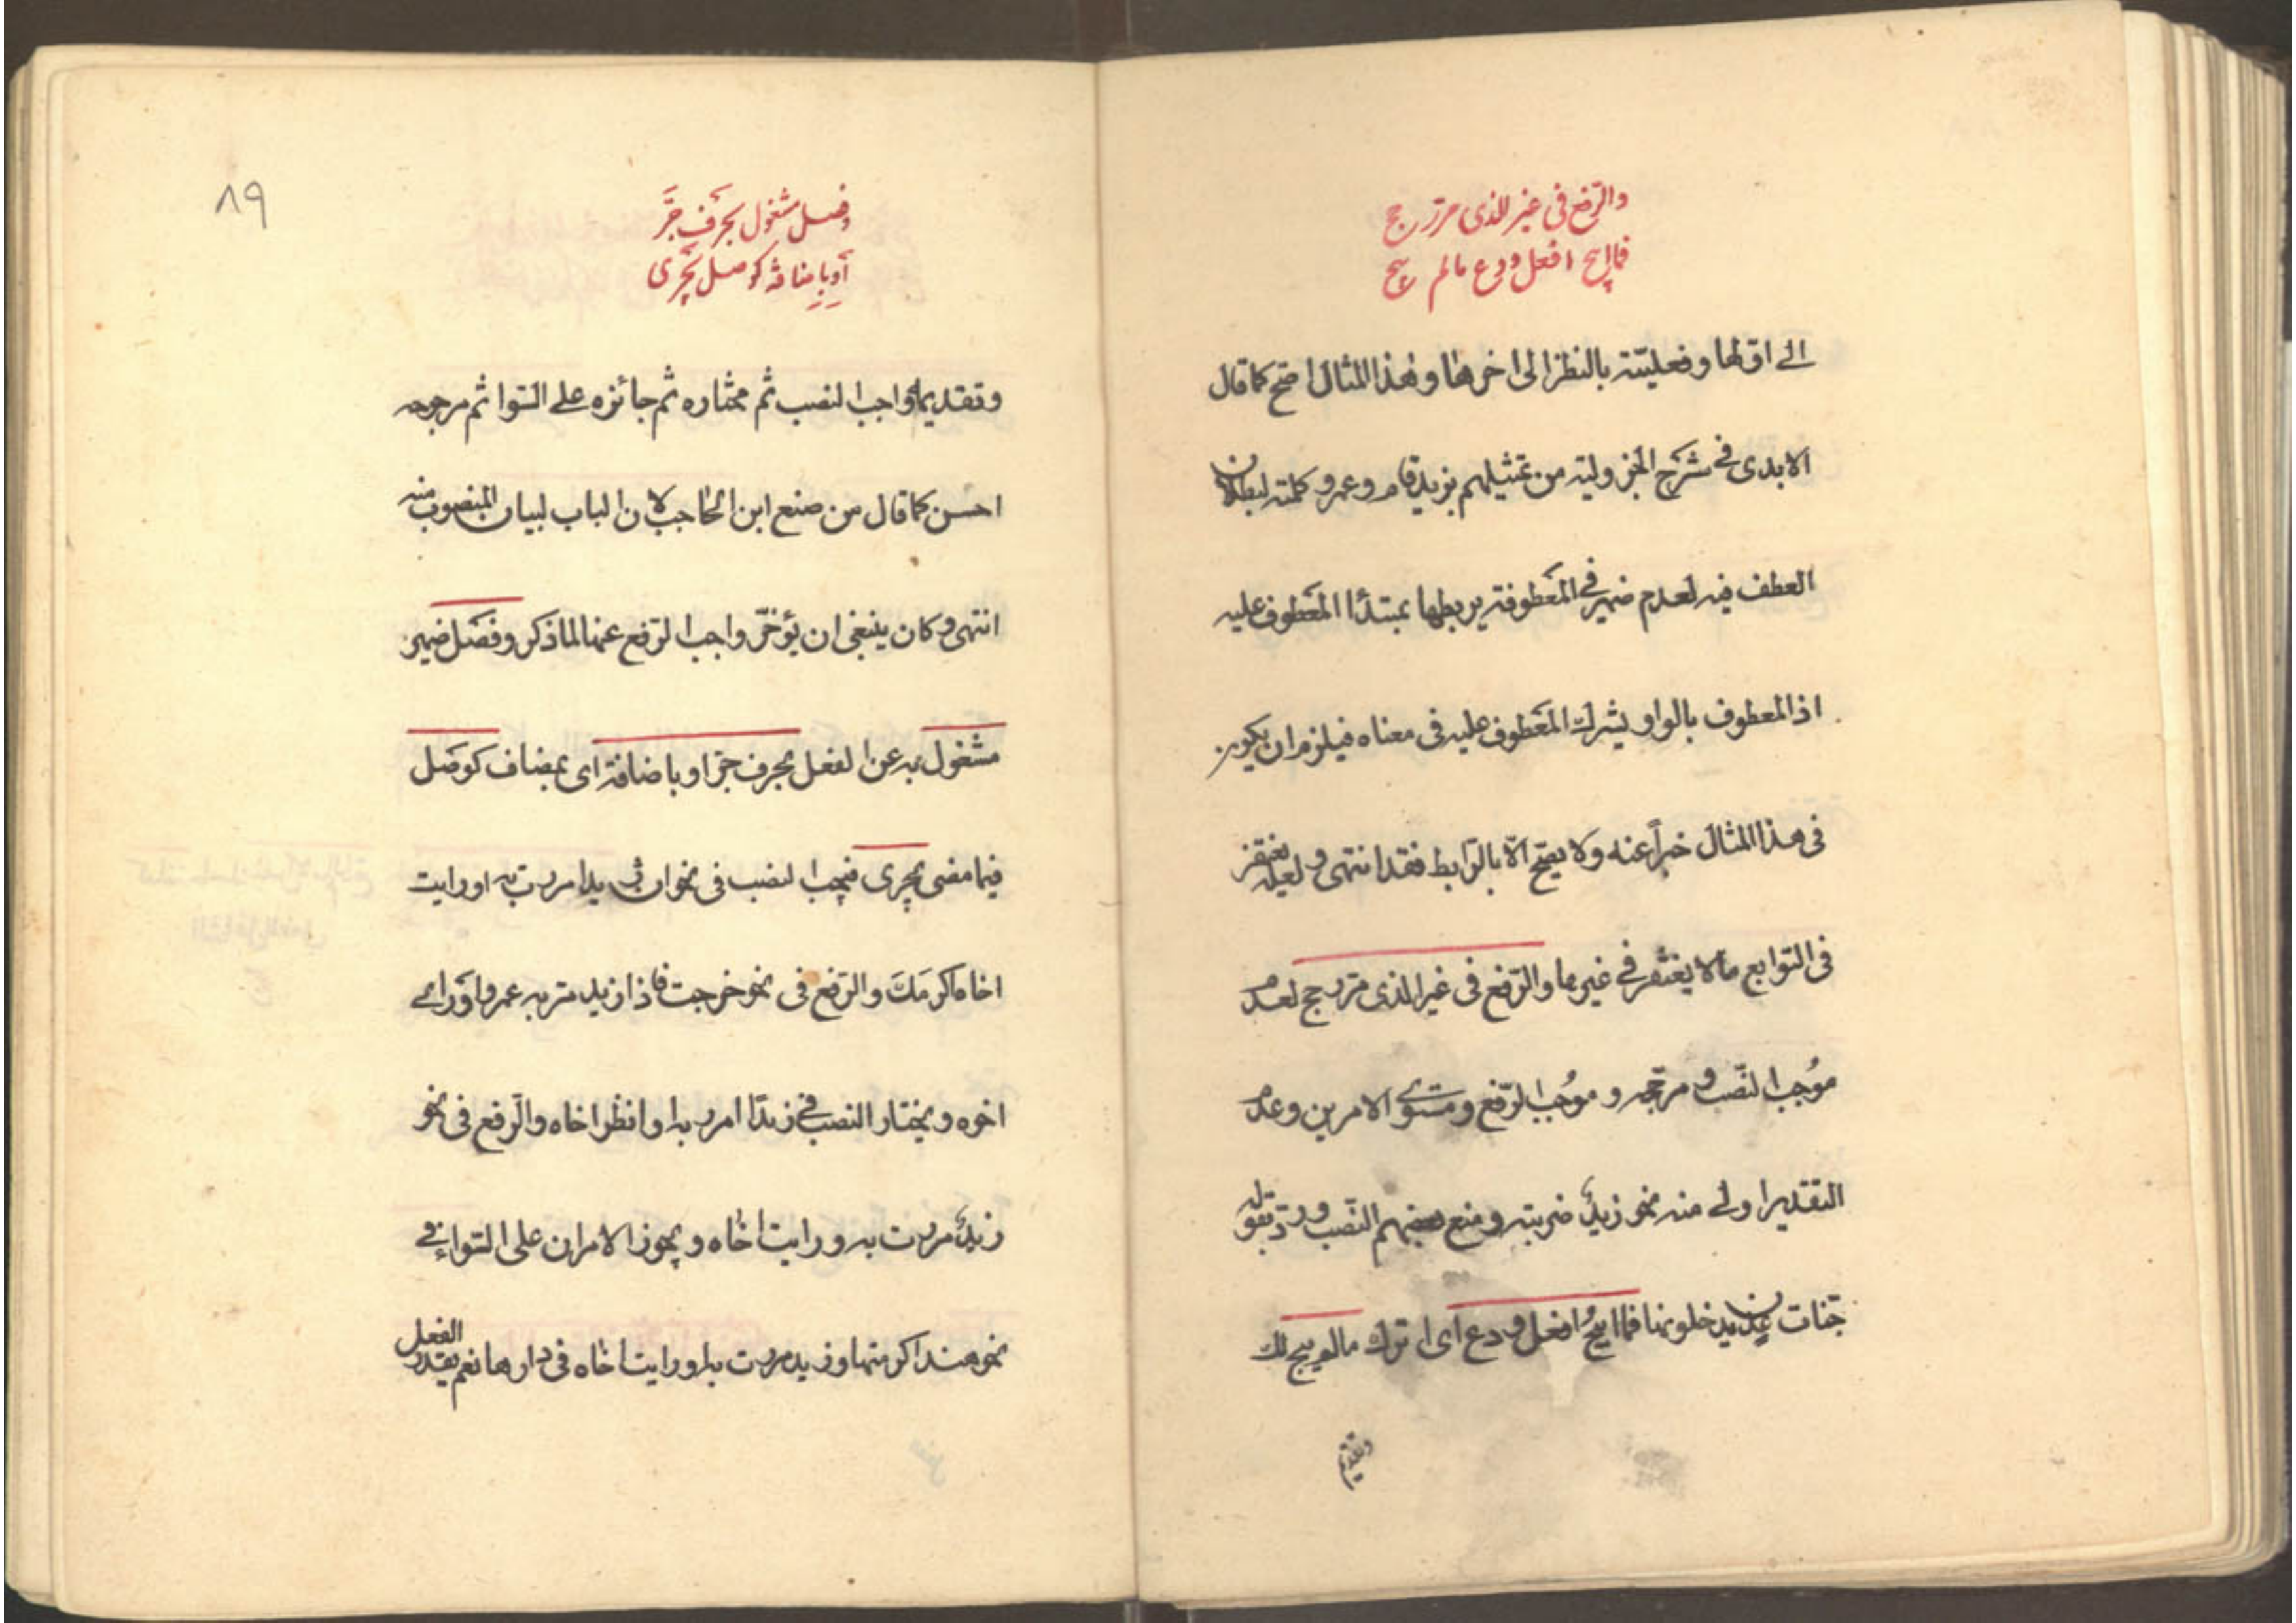 والرّفع فی غیر الذی مرّ رجح
فما ابیح افعل ودع مالم یبح
الی اوّلها وفعلیّته بالنظر الی اخرها وهذا المثال اصّح کما قال
الابدی فی شرح الجزولیه من تمثیلهم بزید قام وعمرو کلمته لبطلان
العطف فیه لعدم ضمیر فی المعطوفة یربطها بمبتدأ المعطوف علیه
اذ المعطوف بالواو یشرك المعطوف علیه فی معناه فیلزم ان یکون
فی هذا المثال خبراً عنه ولا یصّح الّا بالرّابط فقد انتهی ولعله یغتفر
فی التوابع مالا یغتفر فی غیرها والرّفع فی غیر الذی مرّ رجح لعدم
موُجب النّصب ومرجّحه وموُجب الرّفع ومستوی الامرین وعدم
التقدیر اولی منه نحو زیدٌ ضربته ومنع بعضهم النّصب وردّ بقوله
جّنات عدن یدخلونها فما ابیحُ افعل ودع ای اترك مالم یبح لك
وتقدیم
۸۹
وفصل مشغول بحرف جَرّ
أو بإضافة کوصل یجری
وتقدیمه واجب النصب ثم مختاره ثم جائزه علی السّوا ثم مرجوحه
احسن کما قال من صنع ابن الحاجب لان الباب لبیان المنصوب منه
انتهی وکان ینبغی ان یؤخّر واجب الرّفع عنها لما ذکر وفصل ضمیر
مشغول به عن الفعل بحرف جرّ او باضافة ای بمضاف کوصل
فیما مضی یجری فیجب النصب فی نحو ان زیدا مررت به او رایت
اخاه اکرمَكَ والرّفع فی نحو خرجت فاذا زید مرّ به عمرو او رای
اخوه ویختار النصب فی زیدًا امرر به او انظر اخاه والرّفع فی نحو
زیدٌ مررت به ورایت اخاه ویجوز الامران علی السّواء فی
نحو هند اکرمتها وزید مررت به او رایت اخاه فی دارها نعم یقدر الفعل